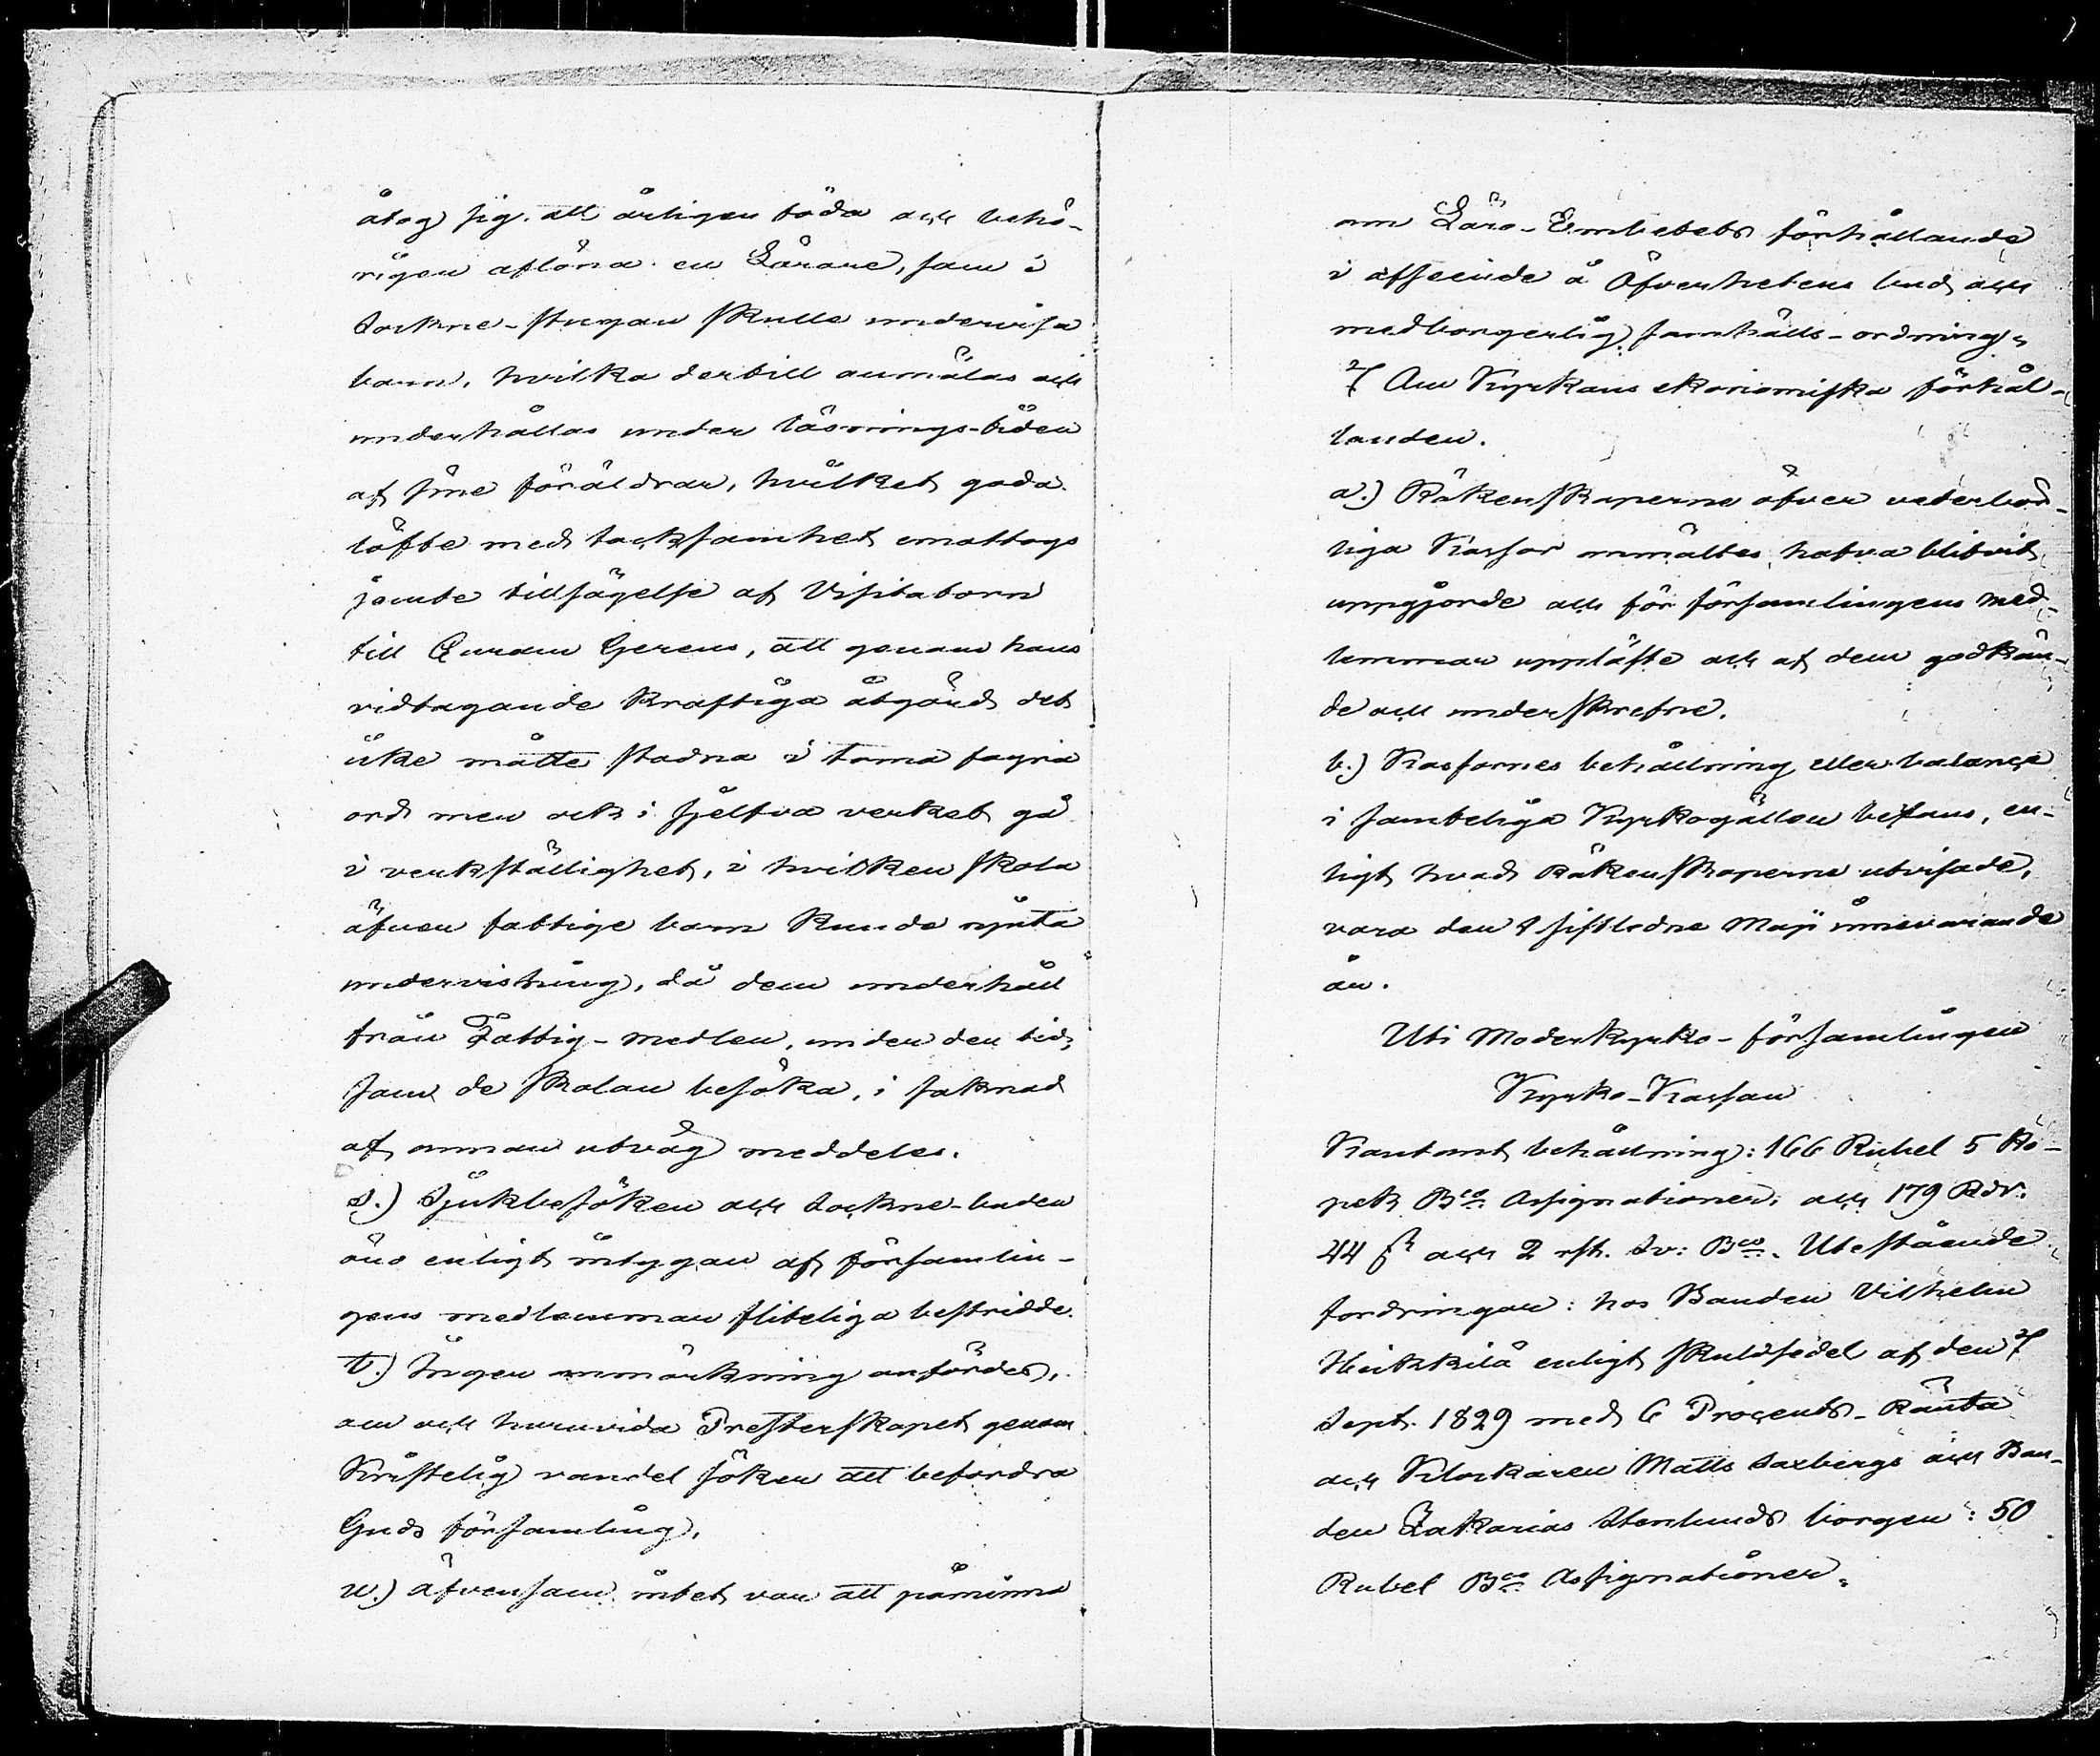 åtog sig att årligen föda och behö-
rigen aflöna en Lärare, som i
Sockne-stugan skulle undervisa
barn, hvilka dertill anmälas och
underhållas under läsnings-tiden
af sine föräldrar, hvilket goda
löfte med tacksamhet emottogs
jemte tillsägelse af Visitatorn
till Curam Gerens, att genom hans
vidtagande kraftiga åtgärd det
icke måtte stadna i toma fagra
ord men ock i sjelfva verket gå
i verkställighet, i hvilken skola
äfven fattige barn kunde njuta
undervisning, då dem underhåll
från Fattig-medlen, under den tid,
som de skolan besöka, i saknad
af annan utväg meddeles.
s.) Sjukbesöken och Sockne-buden
äro enligt intygan af församlin-
gens medlemmar fliteliga bestridde.
t.) Ingen anmärkning anfördes,
om och huruvida Presterskapet genom
Kristelig vandel söker att befordra
Guds församling,
u.) Äfvensom intet var att påminna
om Läro-Embetets förhållande
i afseende å Öfverhetens bud och
medborgerlig samhälls-ordning.
7 Om Kyrkans ekonomiska förhål-
landen.
a.) Räkenskaperne öfver vederbör-
liga Kassor anmältes hafva blifvit
uppgjorde och för församlingens med-
lemmar uppläste och af dem godkän-
de och underskrefne.
b.) Kassornes behållning eller balance
i samteliga Kyrkogällen befans, en-
ligt hvad Räkenskaperne utvisade,
vara den 1 sistledne Maji innevarande
år.
Uti Moderkyrko-församlingen
Kyrko-Kassan
Kontant behållning: 166 Rubel 5 Ko-
pek Bco Assignationer, och 179 Rdr.
44 ß och 2 rst. Sv: Bco. Utestående
fordringar: hos Bonden Vilhelm
Heikkilä enligt skuldsedel af den 7
Sept. 1829 med 6 Procents-Ränta
och Klockaren Matts Saxbergs och Bon-
den Zakarias Stenlunds borgen: 50
Rubel Bco Assignationer.